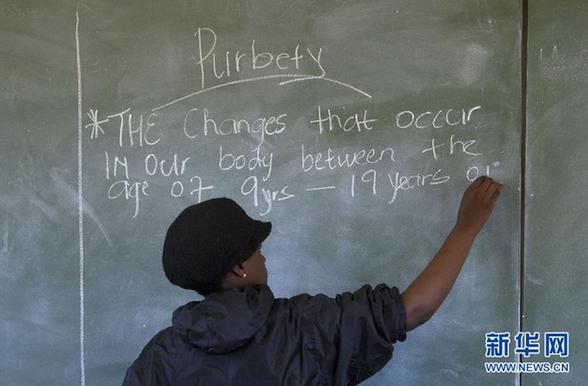 Purbety
*THE Changes that occur
In our body between the
age of 9yrs - 19 years ol
新华网
WWW.NEWS.CN